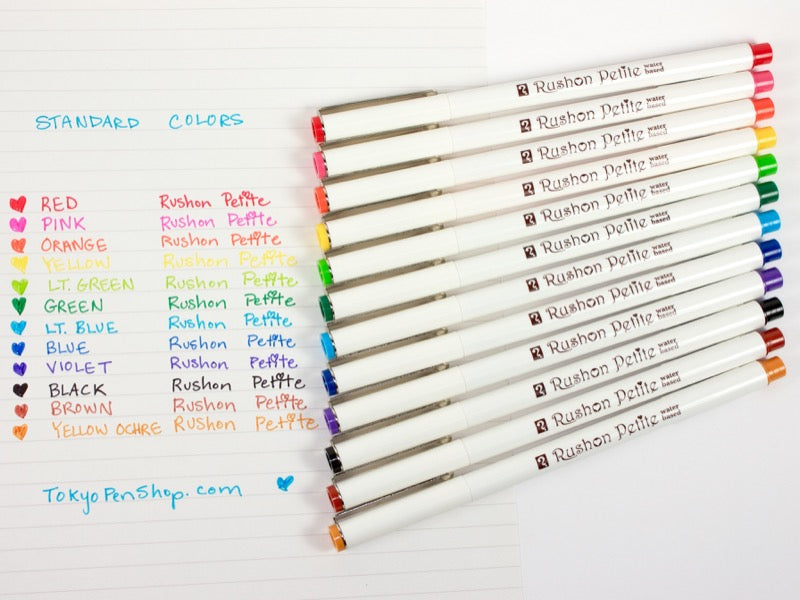 STANDARD COLORS
RED Rushon Petite
PINK Rushon Petite
ORANGE Rushon Petite
YELLOW Rushon Petite
LT. GREEN Rushon Petite
GREEN Rushon Petite
LT. BLUE Rushon Petite
BLUE Rushon Petite
VIOLET Rushon Petite
BLACK Rushon Petite
BROWN Rushon Petite
YELLOW OCHRE Rushon Petite
TokyoPenShop.com
Rushon Petite water based
Rushon Petite water based
Rushon Petite water based
Rushon Petite water based
Rushon Petite water based
Rushon Petite water based
Rushon Petite water based
Rushon Petite water based
Rushon Petite water based
Rushon Petite water based
Rushon Petite water based
Rushon Petite water based